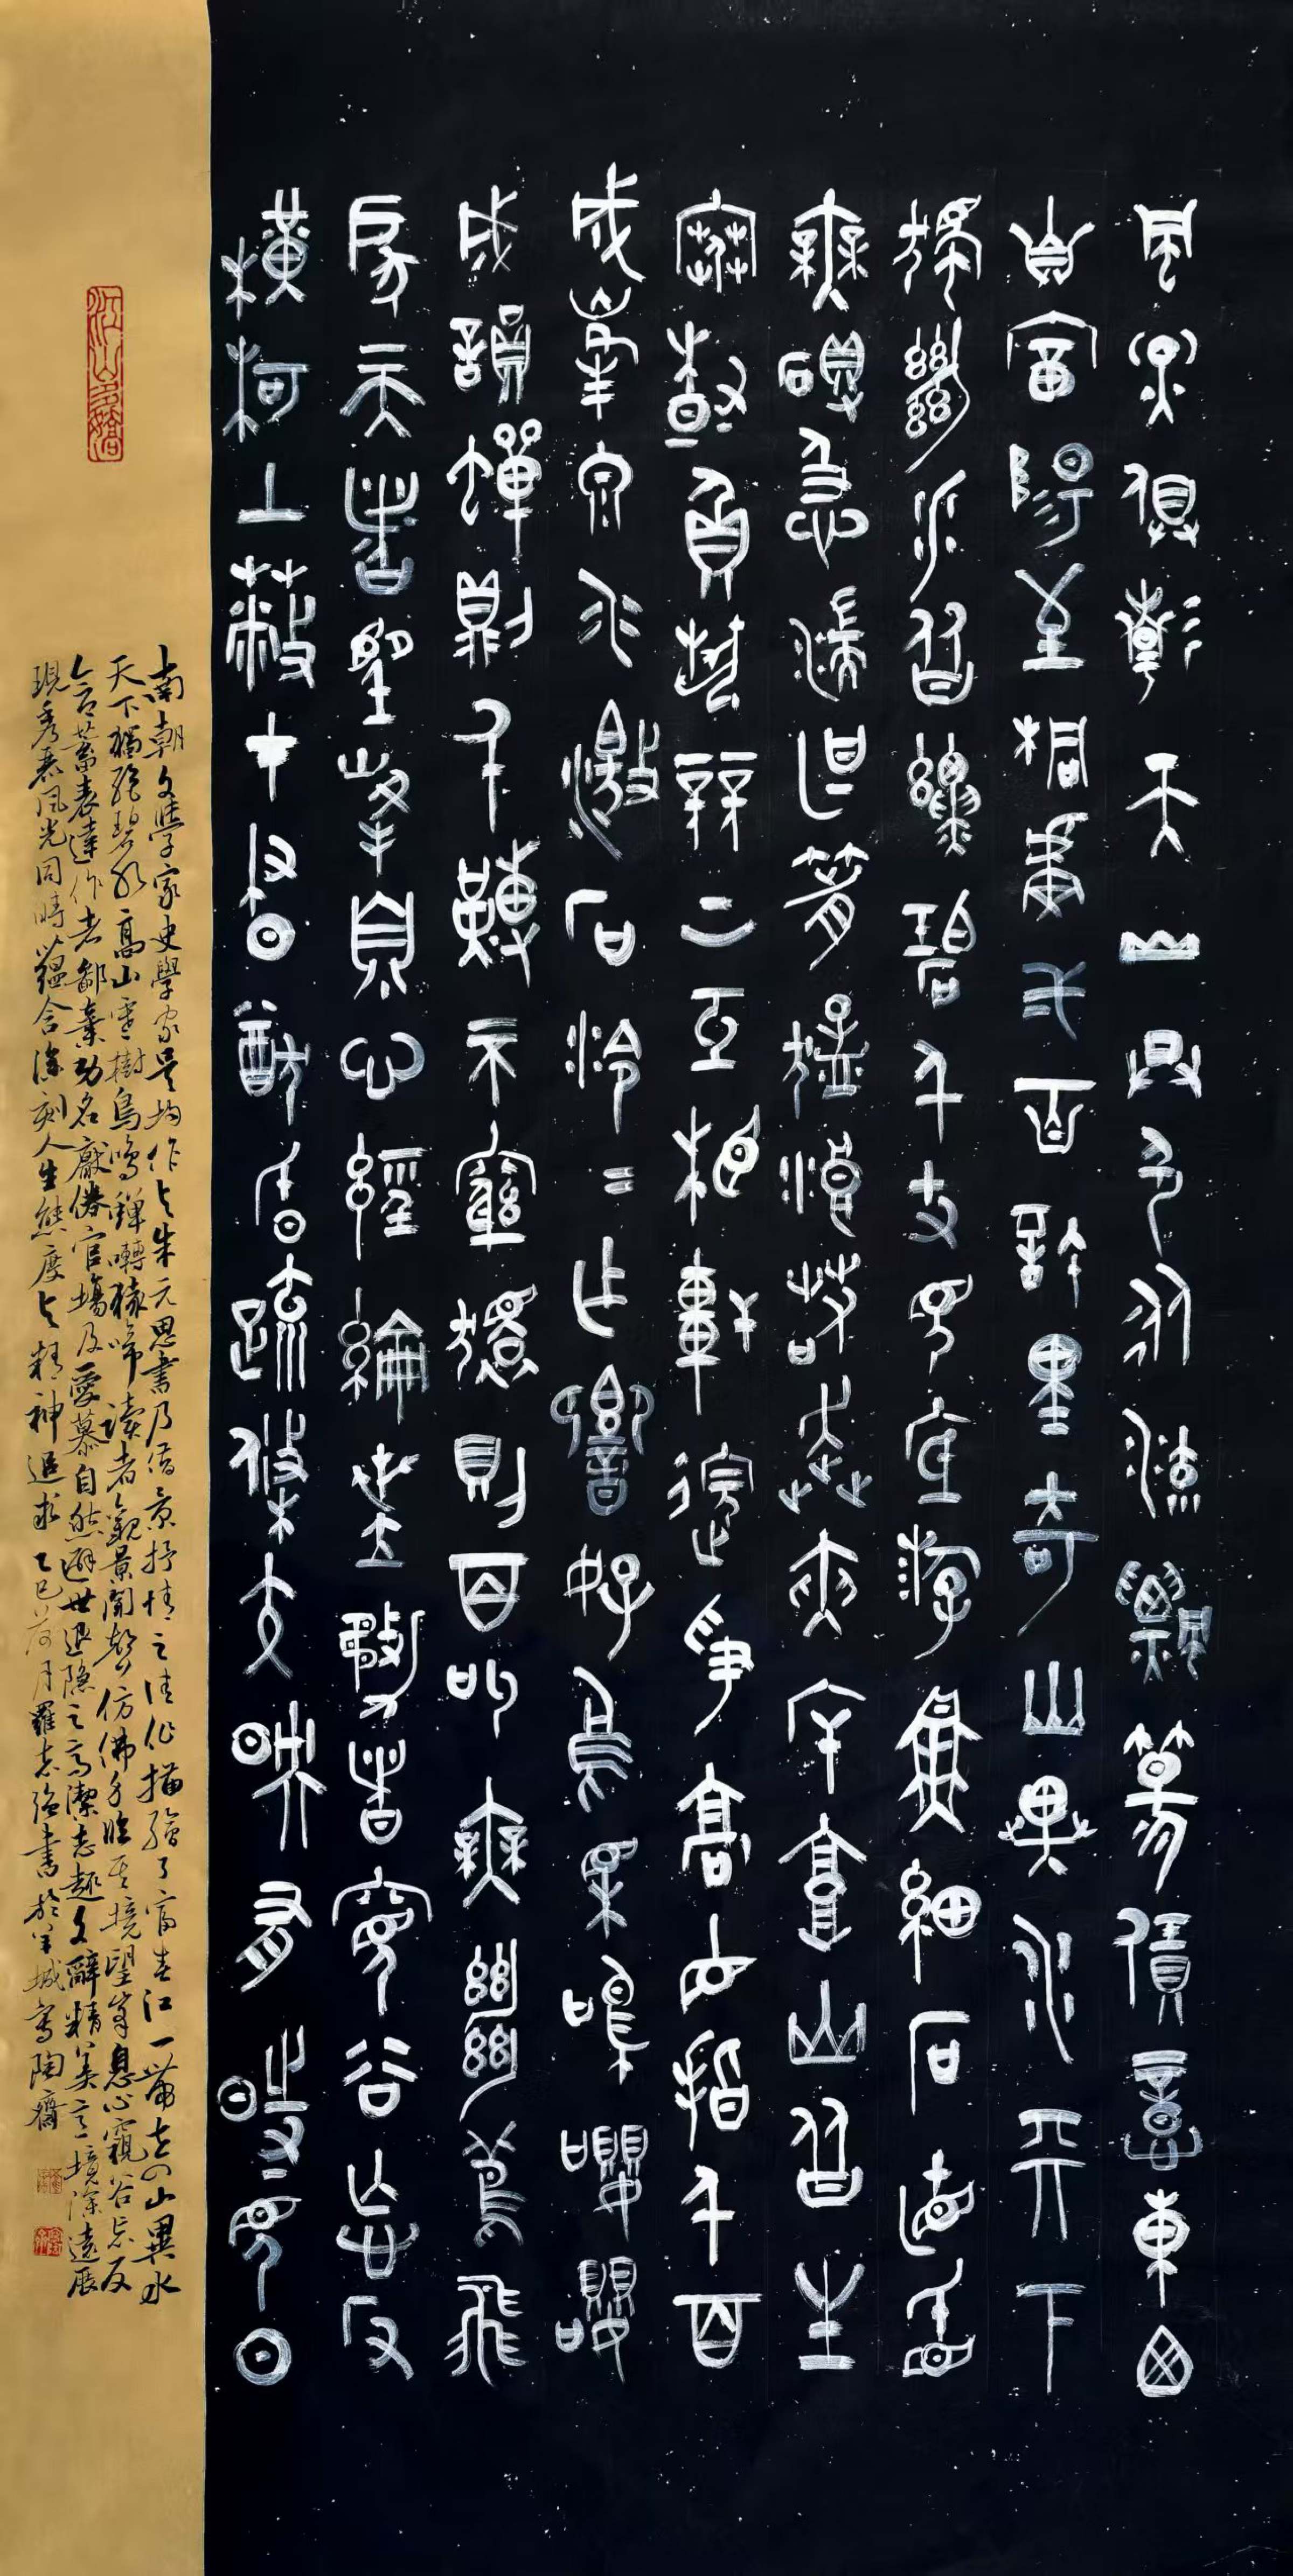 風煙俱淨天山共色从流飄蕩任意東西
自富陽至桐廬弌百許里奇山異水天下
獨絕水皆縹碧千丈見底游魚細石直視
無礙急湍甚箭猛浪若奔夾岸高山皆生
寒樹負勢競上互相軒邈爭高直指千百
成峯泉水激石泠＝作響好鳥相鳴嚶嚶
成韻蟬則千轉不窮猿則百叫無絕鳶飛
戾天者望峯息心經綸世務者窺谷忘反
橫柯上蔽在晝猶昏疏條交映有時見日
南朝文學家史學家吳均作與朱元思書乃借景抒情之佳作描繪了富春江一帶奇山異水
天下獨絕碧水高山寒樹鳥鳴蟬囀猿啼讀者觀景聞聲仿佛身臨其境望峯息心窺谷忘反
含蓄表達作者鄙棄功名厭倦官場及愛慕自然避世退隱之高潔志趣文辭精美意境深遠展
現秀麗風光同時蘊含深刻人生態度與精神追求 乙巳荷月羅志強書於羊城寄陶齋
江山多嬌